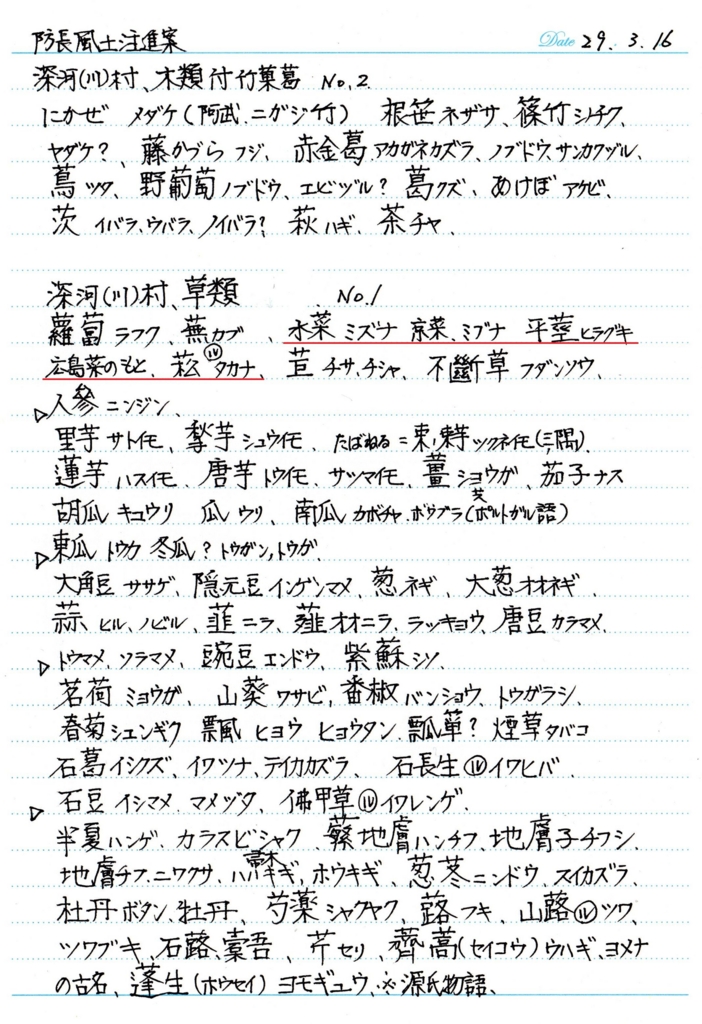 防長風土注進案 Date 29.3.16
深河(川)村、木類付竹菓葛 No.2
にかぜ メダケ(阿武.ニガジ竹) 根笹ネザサ、篠竹シノチク、
ヤダケ?、藤かづら フジ、赤金葛アカガネカズラ、ノブドウ、サンカクヅル、
蔦ツタ、野葡萄ノブドウ、エビヅル? 葛クズ、あけぼアケビ、
茨 イバラ、ウバラ、ノイバラ? 萩ハギ、茶チャ、
深河(川)村、草類 No.1
蘿蔔ラフク、蕪カブ、水菜ミズナ 京菜、ミブナ 平莖ヒラグキ
広島菜のもと、菘⑭タカナ、苣チサ、チシャ、不斷草フダンソウ、
▷人參ニンジン、
里芋サトイモ、芋シュウイモ、たばねる=束、芋ツクネイモ(三隅)、
蓮芋ハスイモ、唐芋トウイモ、サツマイモ、薑ショウガ、茄子ナス
胡瓜キュウリ 瓜ウリ、南瓜カボチャ、ボウブラ(ポルトガル語)
▷東瓜トウカ 冬瓜?トウガン,トウガ、
大角豆ササゲ、隠元豆インゲンマメ、葱ネギ、大葱オオネギ、
蒜ヒル、ノビル、韮ニラ、薤オオニラ、ラッキョウ、唐豆カラマメ、
▷トウマメ、ソラマメ、豌豆エンドウ、紫蘇シソ、
茗荷ミョウガ、山葵ワサビ,番椒バンショウ、トウガラシ、
春菊シュンギク 瓢 ヒョウ ヒョウタン、瓢箪? 煙草タバコ
石葛イシクズ、イワツナ、テイカカズラ、石長生⑭イワヒバ、
▷石豆イシマメ マメヅタ、佛甲草⑭イワレンゲ、
半夏ハンゲ、カラスビシャク、地膚ハンチフ、地膚子チフシ、
地膚チフ、ニワクサ、ハハキギ,ホウキギ、葱苳ニンドウ、スイカズラ、
杜丹ボタン、牡丹、芍薬シャクヤク、蕗フキ、山蕗⑭ツワ、
ツワブキ、石蕗、橐吾、芹セリ、薺蒿(セイコウ)ウハギ、ヨメナ
の古名、蓬生(ホウセイ)ヨモギュウ、※源氏物語、